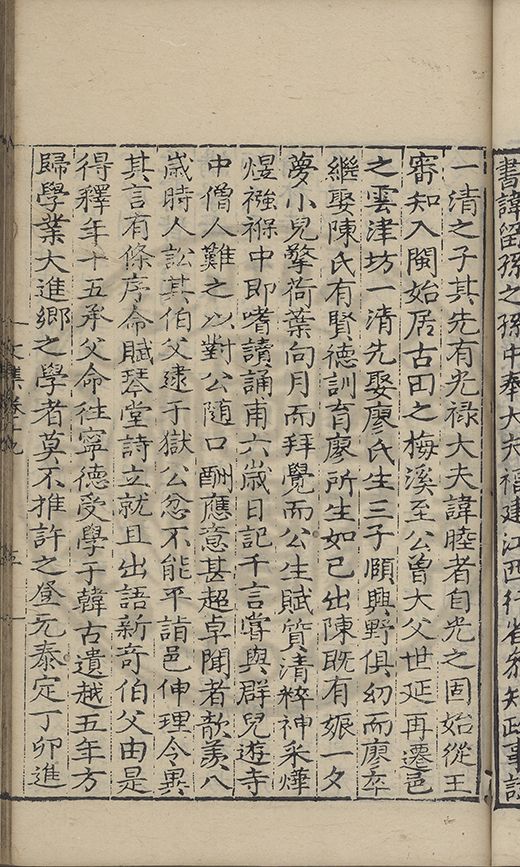 書諱留孫之孫中奉大夫福建江西行省叅知政事諱
一清之子其先有光禄大夫諱睦者自光之固始從王
審知入閩始居古田之梅溪至公曾大父世延再遷邑
之雲津坊一清先娶廖氏生三子頤興野俱幼而廖卒
繼娶陳氏有賢德訓育廖所生如己出陳既有娠一夕
夢小兒擎荷葉向月而拜覺而公生賦質清粹神采燁
煜襁褓中即嗜讀誦甫六歲日記千言嘗與群兒遊寺
中僧人難之以對公随口酬應意甚超卓聞者歆羨八
歲時人訟其伯父逮于獄公忿不能平詣邑伸理令異
其言有條序命賦琴堂詩立就且出語新奇伯父由是
得釋年十五承父命往寧德受學于韓古遺越五年方
歸學業大進鄉之學者莫不推許之登元泰定丁卯進
文集卷十九